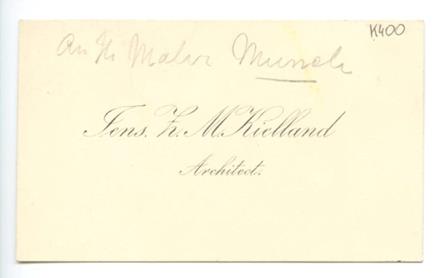 K400
An H Maler Munch
Jens. Z. M. Kielland
Architect.